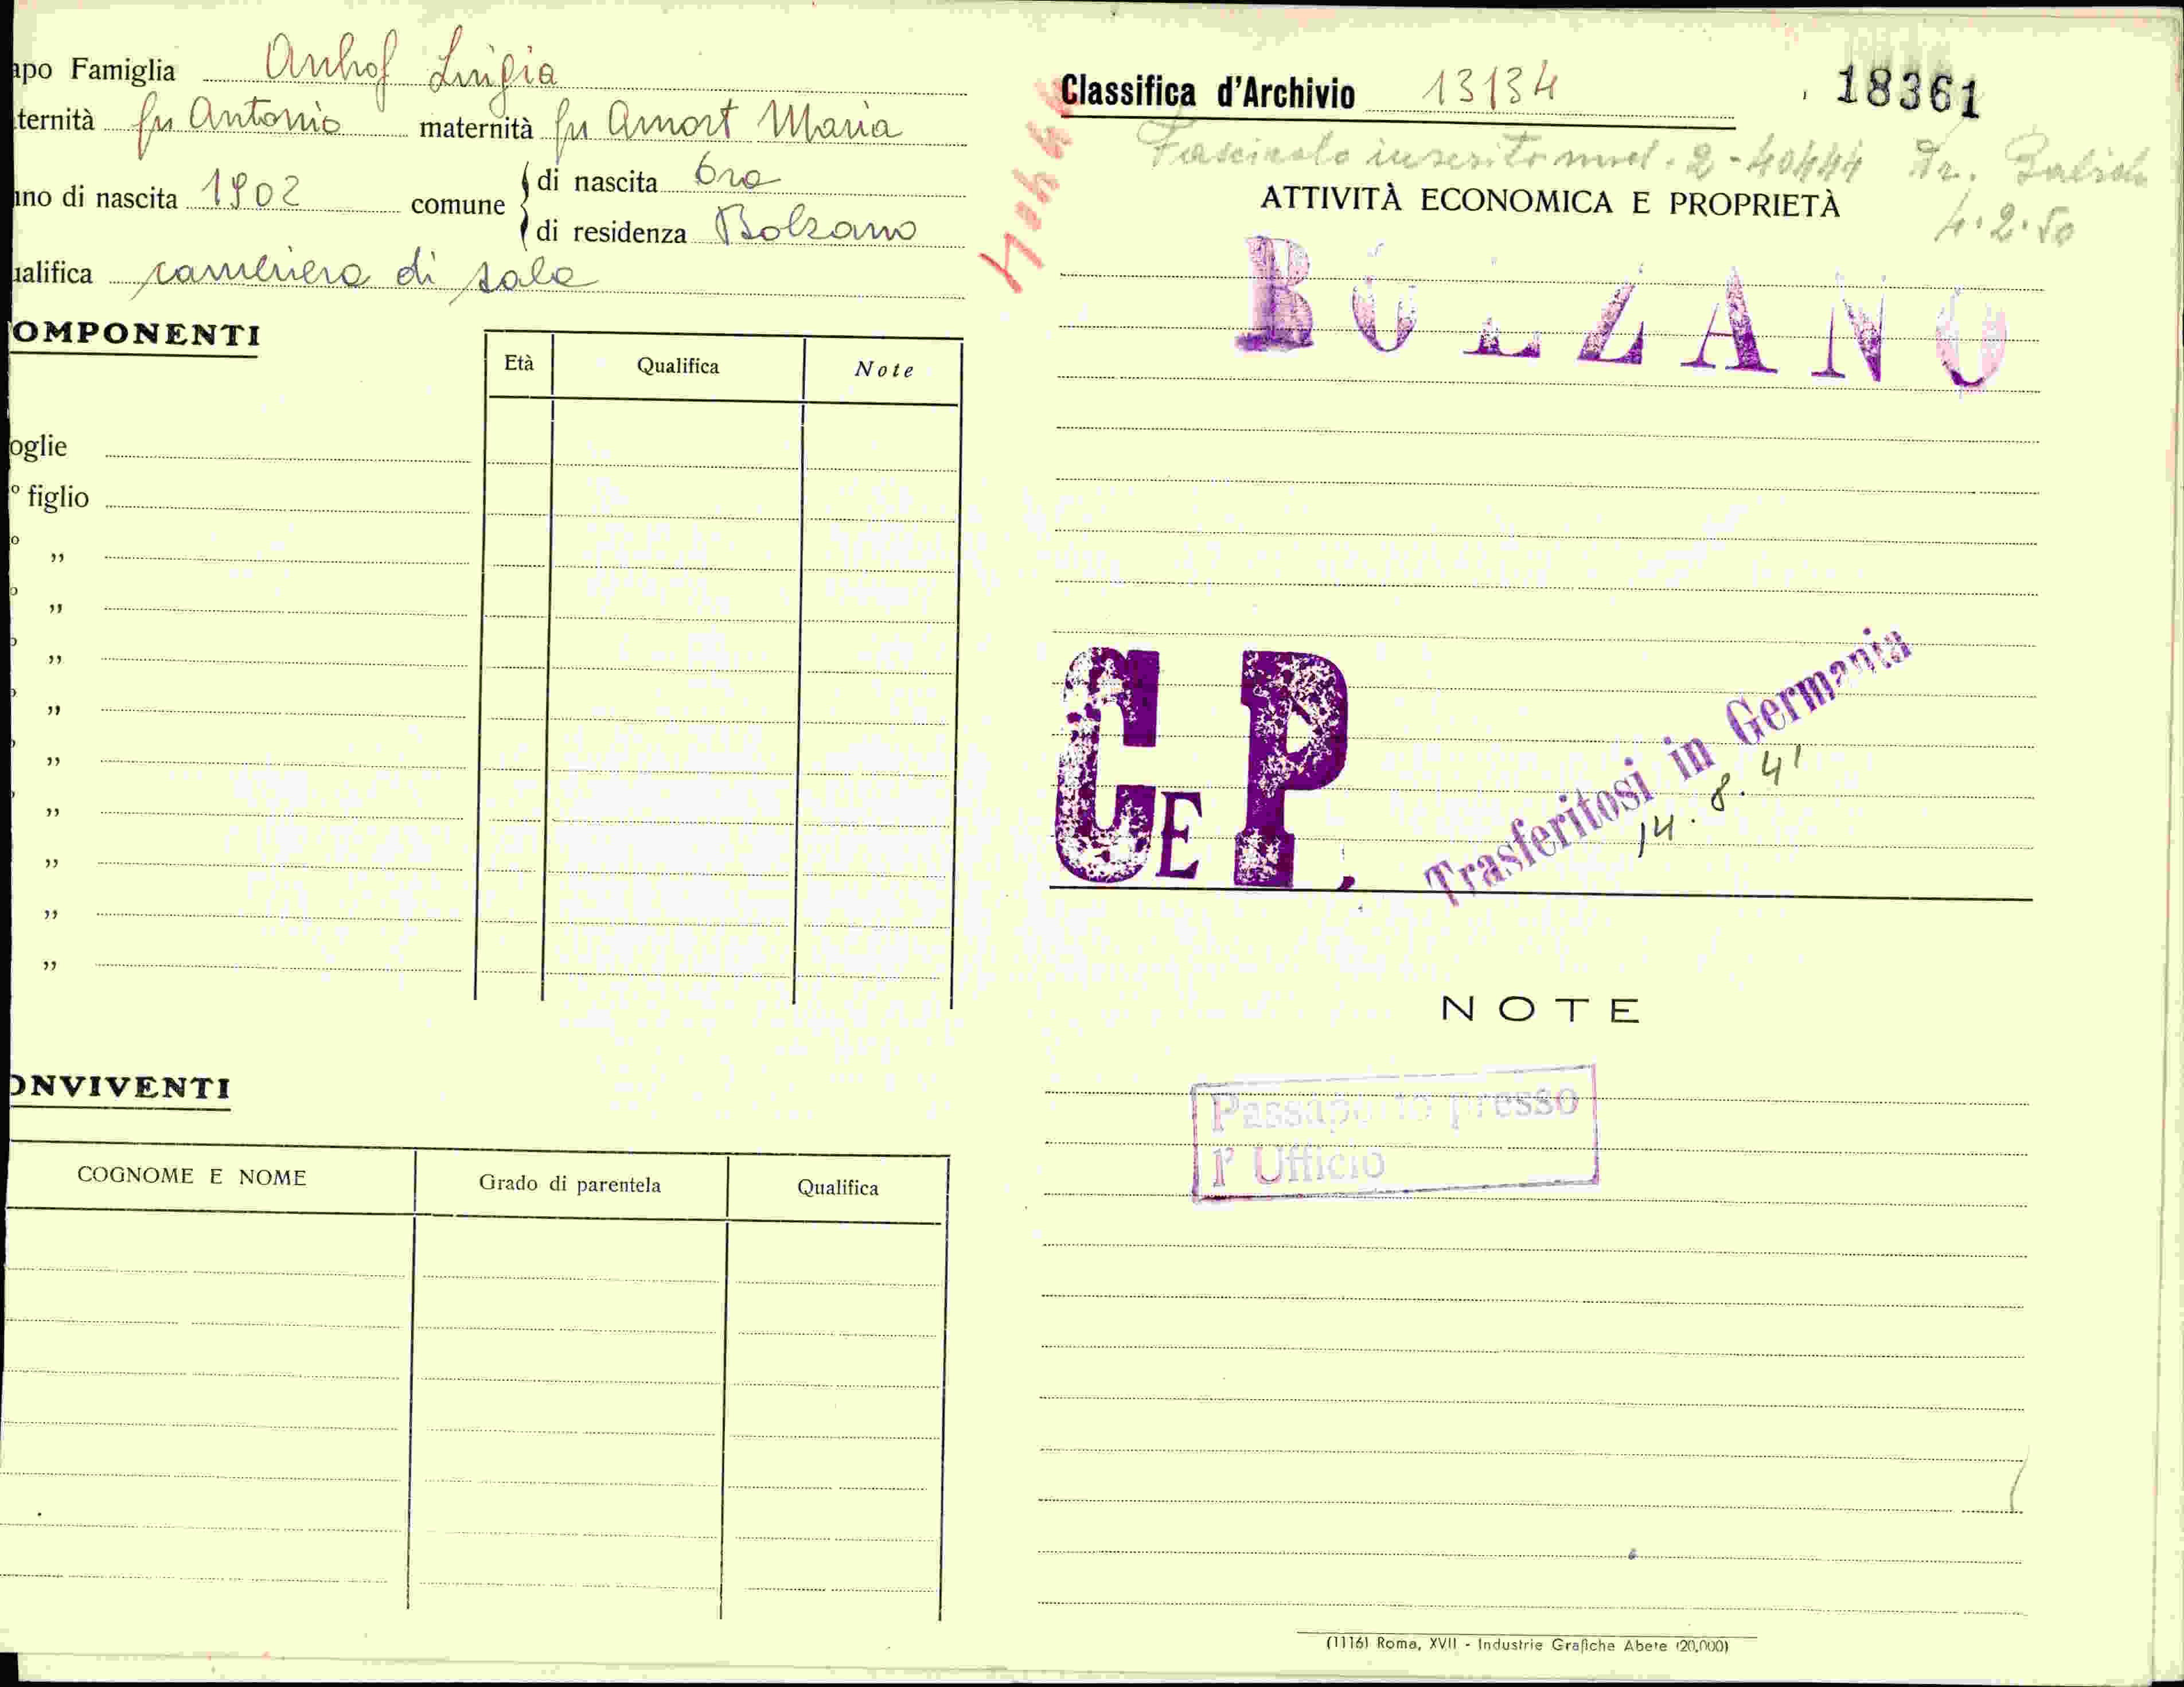 apo Famiglia Anhof Luigia
ternità fu Antonio maternità fu Amort Maria
ino di nascita 1902 comune di nascita Ora
di residenza Bolzano
ualifica cameriera di sala
OMPONENTI
Età Qualifica Note
oglie
° figlio
° ,,
° ,,
° ,,
° ,,
° ,,
,,
,,
,,
,,
ONVIVENTI
COGNOME E NOME Grado di parentela Qualifica
Classifica d'Archivio 13134 18361
Fascicolo inserito nuel. 2-40444 Dr.
4.2.50
40444
ATTIVITÀ ECONOMICA E PROPRIETÀ
BOLZANO
C E P
Trasferitosi in Germania
14. 8. 41
NOTE
Passaporto presso
l' Ufficio
(1116) Roma, XVII - Industrie Grafiche Abete (20,000)